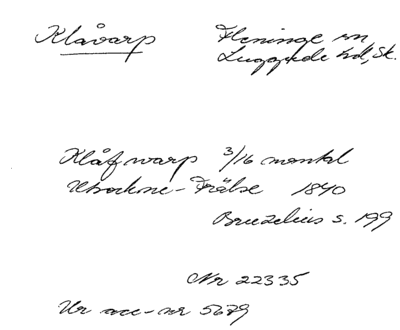 Klåvarp Fleninge sn
Luggude hd, Sk.
Klåfwarp 3/16 mantal
Utsockne-Frälse 1840
Bruzelius s. 199
Nr 22335
Ur acc-nr 5679